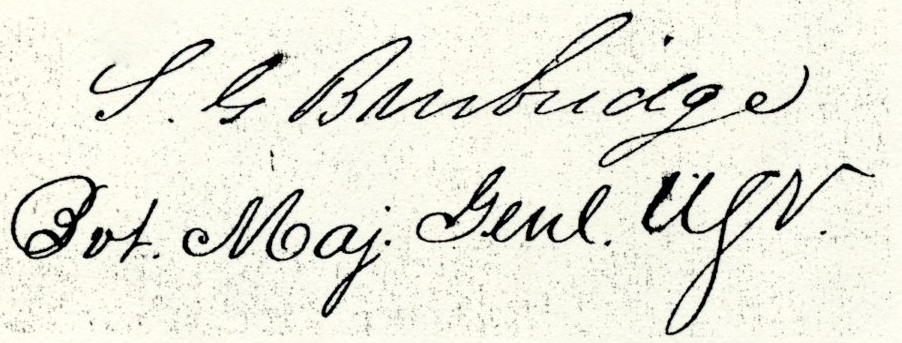 S. G Burbridge
Bvt. Maj. Genl. USV.